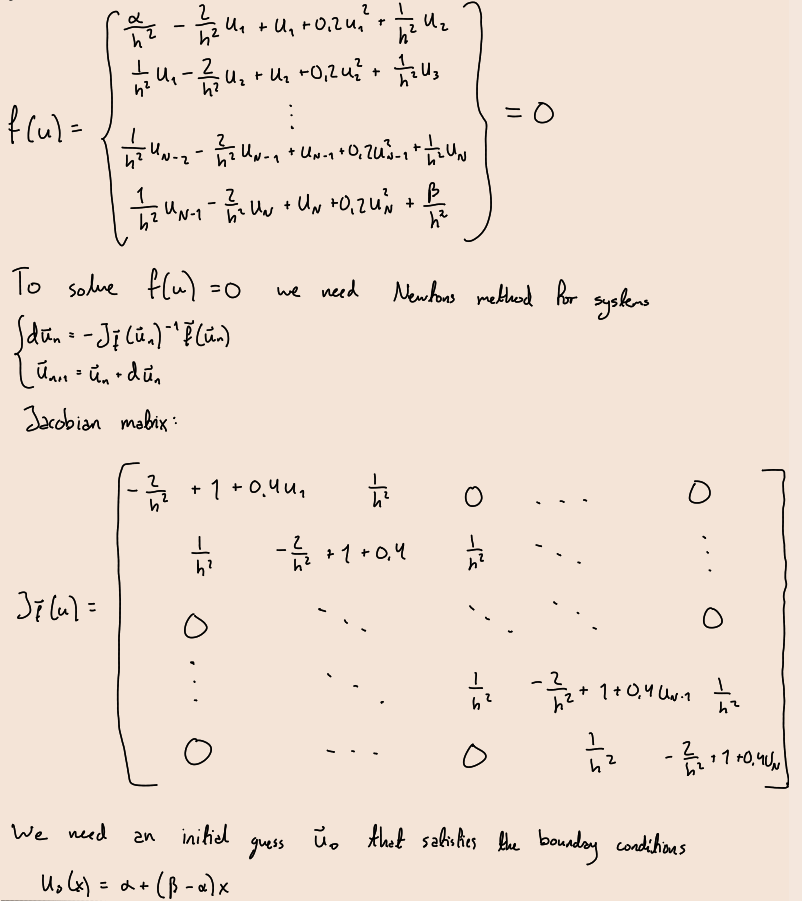 α/h² - 2/h² u₁ + u₁ + 0,2u₁² + 1/h² u₂
1/h² u₁ - 2/h² u₂ + u₂ + 0,2u₂² + 1/h² u₃
f(u) = ⋮ = 0
1/h² u_N-2 - 2/h² u_N-1 + u_N-1 + 0,2u²_N-1 + 1/h² u_N
1/h² u_N-1 - 2/h² u_N + u_N + 0,2u_N² + β/h²
To solve f(u) = 0 we need Newtons method for systems
{ dūₙ = - J_f̄ (ūₙ)⁻¹ f̄(ūₙ)
ūₙ₊₁ = ūₙ + dūₙ
Jacobian matrix:
-2/h² + 1 + 0.4u₁ 1/h² 0 ... 0
1/h² -2/h² + 1 + 0,4 1/h² ⋱ ⋮
J_f̄(u) = 0 ⋱ ⋱ ⋱ 0
⋮ ⋱ 1/h² -2/h² + 1 + 0,4u_N-1 1/h²
0 ... 0 1/h² -2/h² + 1 + 0,4u_N
We need an initial guess ū₀ that satisfies the boundary conditions
u₀(x) = α + (β - α)x